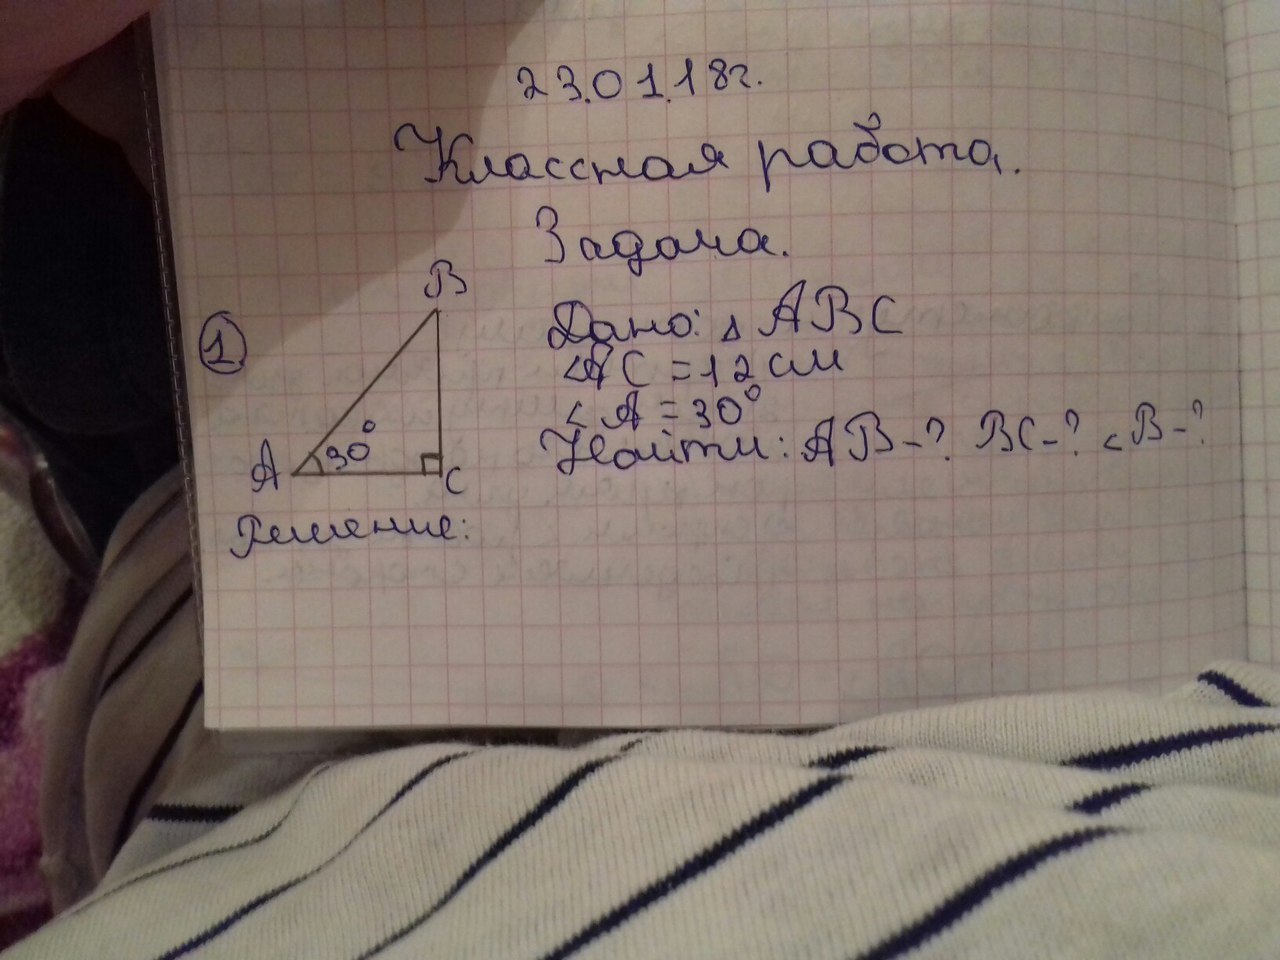 23.01.18г.
Классная работа.
Задача.
1
B
A
30°
C
Дано: △ ABC
<AC = 12 см
< A = 30°
Найти: AB-? BC-? < B-?
Решение: